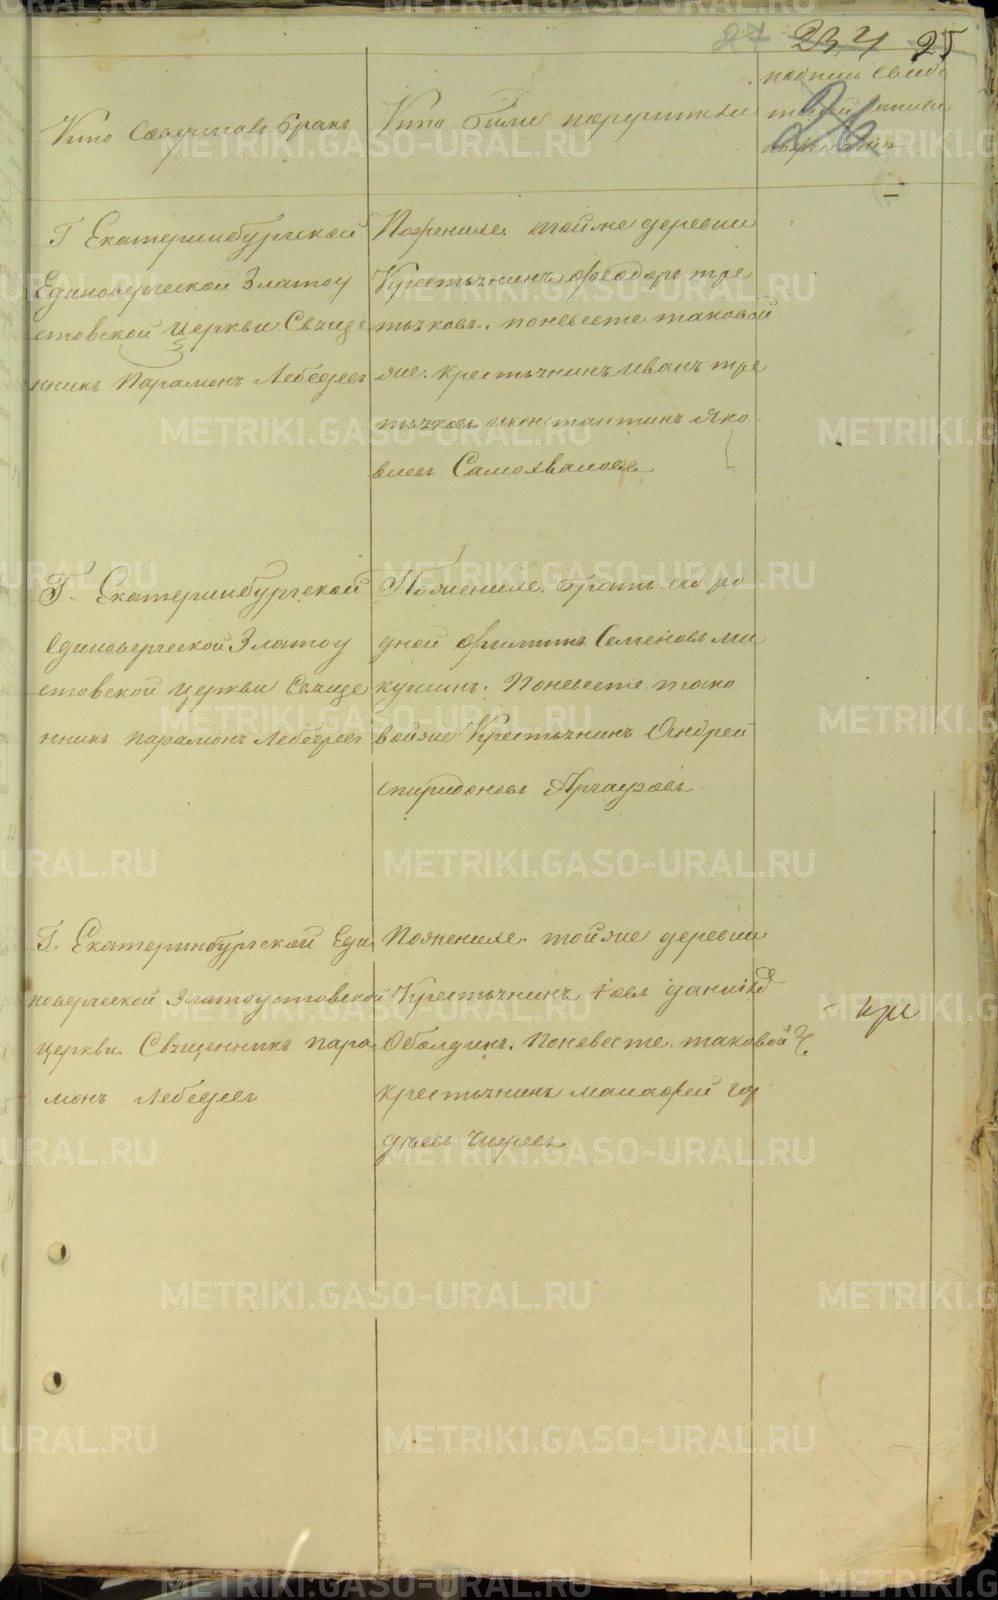 27 234 25
26
Кто совершалъ бракъ
Кто были поручители
подпись свиде
Г Екатеринбургской
Единоверческой Златоу
стовской церкви Священ
нникъ Парамонъ Лебедевъ
Пожениxе. тойже деревни
Крестьянинъ Феодоръ тре
тьяковъ. поневесте таковой
же. крестьянинъ иванъ тре
тьяковъ иконстантинъ Яко
влевъ Самохваловъ
Г. Екатеринбургской
единоверческой Златоу
стовской церкви Свяще
нникъ парамонъ Лебедевъ
Пожениxе. братъ его ро
дной Филиппъ Семеновъ ми
кушинъ. Поневесте. тако
войже Крестьянинъ Андрей
спиридоновъ
Г. Екатеринбургской Еди
новерческой Златоустовской
церкви. Священникъ пара
монъ Лебедевъ
Пожениxе. тойже деревни
Крестьянинъ Іовъ
Оболдинъ. Поневесте. таковой
крестьянинъ малафей гор
деевъ
METRIKI.GASO-URAL.RU